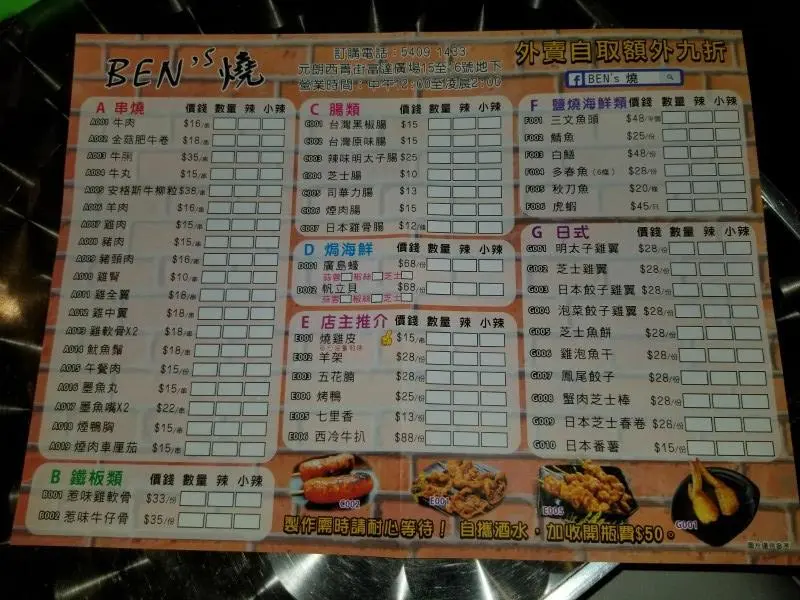 BEN'S 燒
訂購電話：5409 1433
元朗西菁街富達廣場15至16號地下
營業時間：中午12:00至凌晨2:00
外賣自取額外九折
f BEN's 燒
A 串燒 價錢 數量 辣 小辣
A001 牛肉 $16/串
A002 金菇肥牛卷 $18/串
A003 牛脷 $35/串
A004 牛丸 $15/串
A005 安格斯牛柳粒 $38/串
A006 羊肉 $16/串
A007 雞肉 $15/串
A008 豬肉 $15/串
A009 豬頸肉 $16/串
A010 雞腎 $10/串
A011 雞全翼 $18/串
A012 雞中翼 $18/串
A013 雞軟骨X2 $18/串
A014 魷魚鬚 $18/串
A015 午餐肉 $15/份
A016 墨魚丸 $15/串
A017 墨魚嘴X2 $22/串
A018 煙鴨胸 $15/串
A019 煙肉車厘茄 $15/串
B 鐵板類 價錢 數量 辣 小辣
B001 惹味雞軟骨 $33/份
B002 惹味牛仔骨 $35/份
C 腸類 價錢 數量 辣 小辣
C001 台灣黑椒腸 $15
C002 台灣原味腸 $15
C003 辣味明太子腸 $25
C004 芝士腸 $10
C005 司華力腸 $13
C006 煙肉腸 $15
C007 日本雞骨腸 $12/條
D 焗海鮮 價錢 數量 辣 小辣
D001 廣島蠔 $68/份
蒜蓉 椒絲 芝士
D002 帆立貝 $68/份
蒜蓉 椒絲 芝士
E 店主推介 價錢 數量 辣 小辣
E001 燒雞皮 $15/串
E002 羊架 $28/份
E003 五花腩 $28/份
E004 烤鴨 $25/份
E005 七里香 $13/份
E006 西冷牛扒 $88/份
F 鹽燒海鮮類 價錢 數量 辣 小辣
F001 三文魚頭 $48/半個
F002 鯖魚 $25/份
F003 白鱔 $48/份
F004 多春魚（6條） $28/份
F005 秋刀魚 $20/條
F006 虎蝦 $45/只
G 日式 價錢 數量 辣 小辣
G001 明太子雞翼 $28/份
G002 芝士雞翼 $28/份
G003 日本餃子雞翼 $28/份
G004 泡菜餃子雞翼 $28/份
G005 芝士魚餅 $28/份
G006 雞泡魚干 $28/份
G007 鳳尾餃子 $28/份
G008 蟹肉芝士棒 $28/份
G009 日本芝士春卷 $28/份
G010 日本番薯 $15/份
C002
E001
E005
G001
製作需時請耐心等待！ 自攜酒水，加收開瓶費$50。
圖片僅供參考